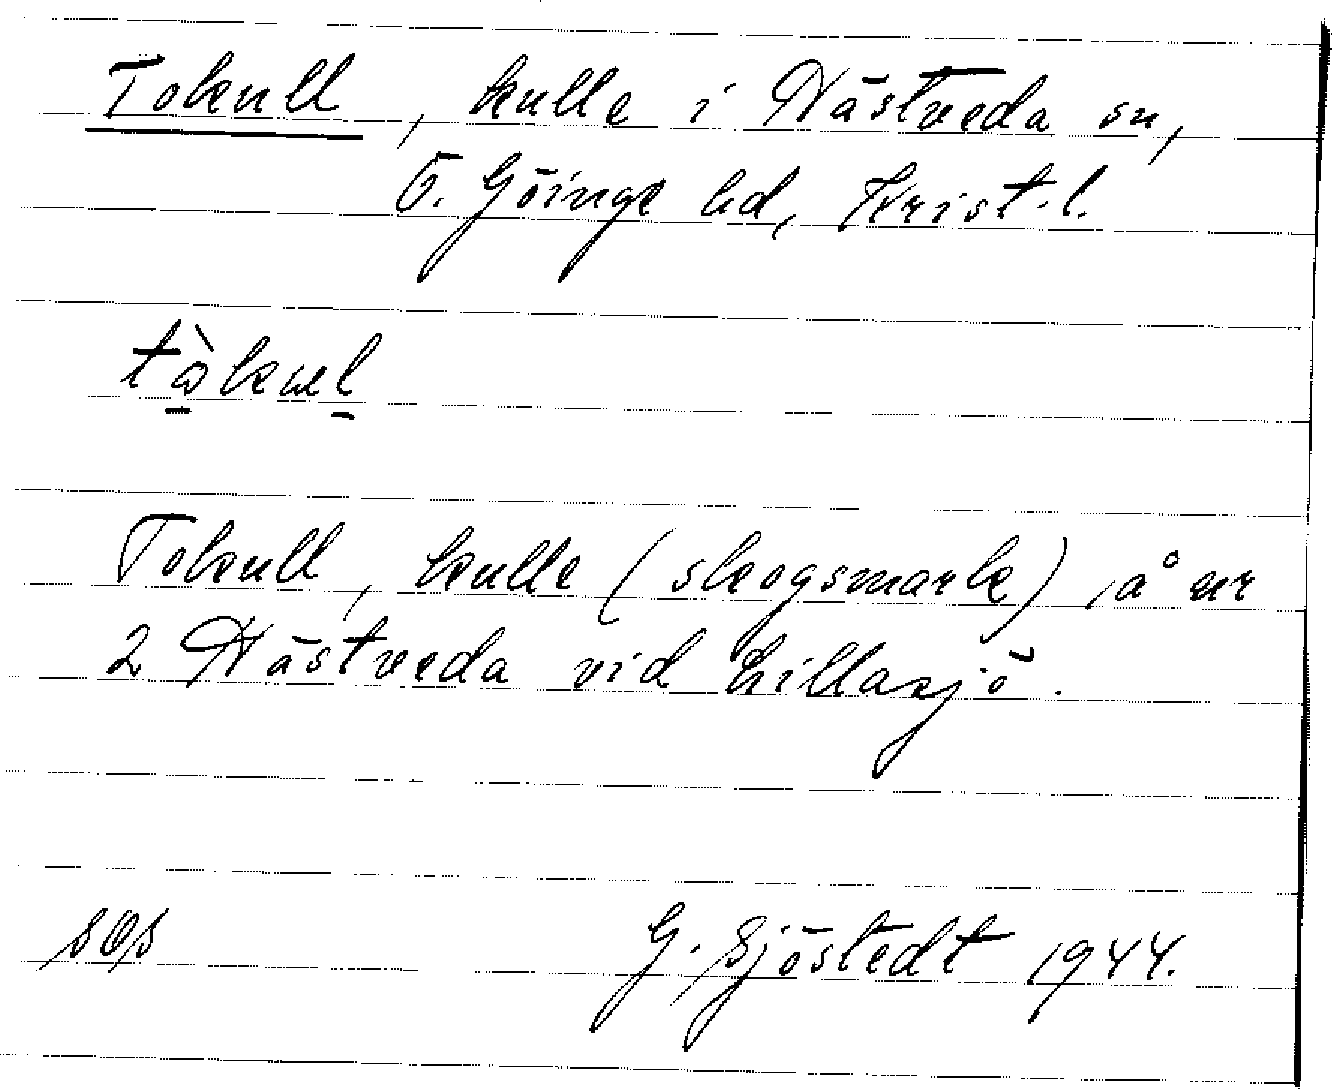 Tokull, kulle i Hästveda sn,
Ö. Göinge hd, Krist. l.
Tokull, kulle (skogsmark), å nr
2 Hästveda vid Lillasjö.
G. Sjöstedt 1944.